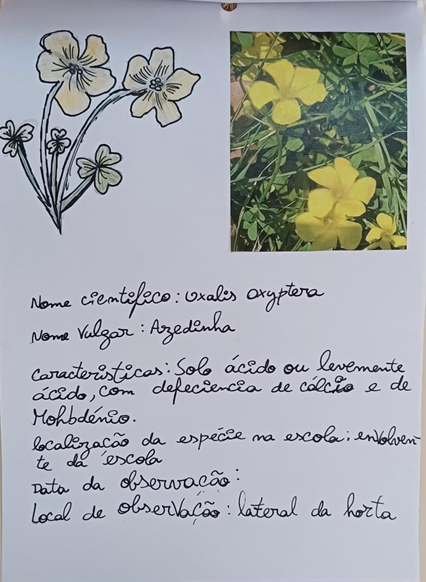 Nome científico: Oxalis Oxyptera
Nome Vulgar: Azedinha
Caracteristicas: Solo ácido ou levemente
ácido, com defeciencia de cálcio e de
Mohbdénio.
localização da espécie na escola: envolven-
te da escola
Data da observação:
Local de observação: lateral da horta